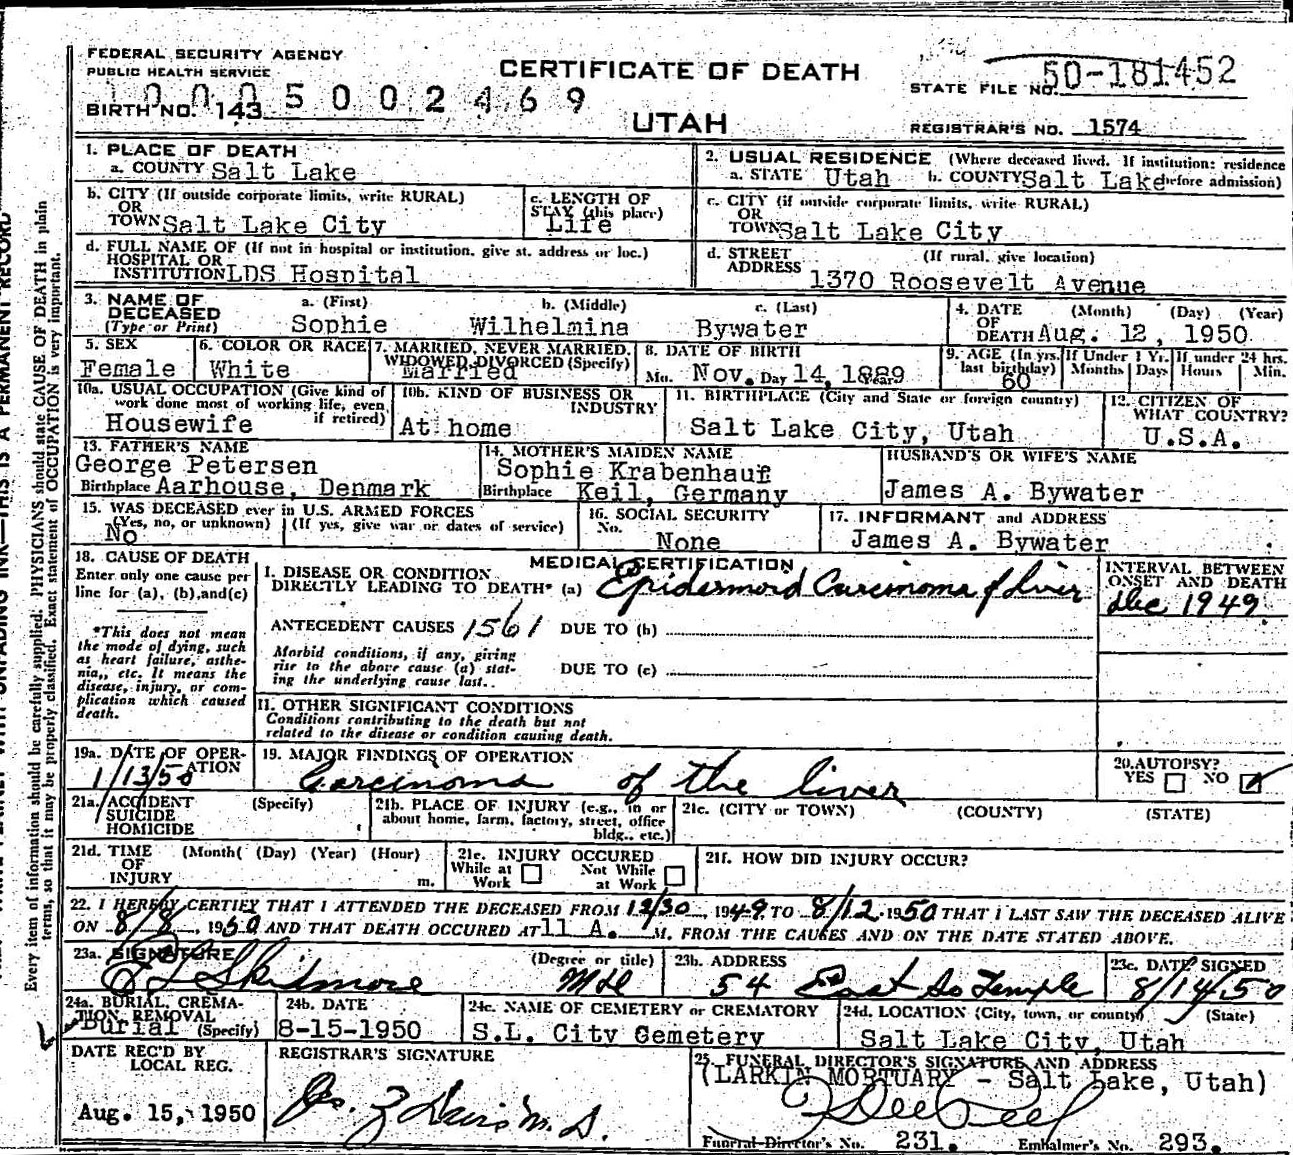 FEDERAL SECURITY AGENCY
PUBLIC HEALTH SERVICE
CERTIFICATE OF DEATH
STATE FILE NO. 50-181452
1 0 0 0 5 0 0 2 4 6 9
BIRTH NO. 143
UTAH
REGISTRAR'S NO. 1574
1. PLACE OF DEATH
a. COUNTY Salt Lake
2. USUAL RESIDENCE (Where deceased lived. If institution: residence
a. STATE Utah b. COUNTY Salt Lake before admission)
b. CITY (If outside corporate limits, write RURAL)
OR
TOWN Salt Lake City
c. LENGTH OF
STAY (this place)
Life
c. CITY (if outside corporate limits, write RURAL)
OR
TOWN Salt Lake City
d. FULL NAME OF (If not in hospital or institution, give st. address or loc.)
HOSPITAL OR
INSTITUTION LDS Hospital
d. STREET (If rural, give location)
ADDRESS 1370 Roosevelt Avenue
3. NAME OF DECEASED
(Type or Print)
a. (First) b. (Middle) c. (Last)
Sophie Wilhelmina Bywater
4. DATE (Month) (Day) (Year)
OF
DEATH Aug. 12, 1950
5. SEX
Female
6. COLOR OR RACE
White
7. MARRIED, NEVER MARRIED,
WIDOWED, DIVORCED (Specify)
Married
8. DATE OF BIRTH
Mo. Nov. Day 14, 1889 Year
9. AGE (In yrs. last birthday)
60
If Under 1 Yr.
Months Days
If under 24 hrs.
Hours Min.
10a. USUAL OCCUPATION (Give kind of
work done most of working life, even
if retired)
Housewife
10b. KIND OF BUSINESS OR
INDUSTRY
At home
11. BIRTHPLACE (City and State or foreign country)
Salt Lake City, Utah
12. CITIZEN OF
WHAT COUNTRY?
U.S.A.
13. FATHER'S NAME
George Petersen
Birthplace Aarhouse, Denmark
14. MOTHER'S MAIDEN NAME
Sophie Krabenhauf
Birthplace Keil, Germany
HUSBAND'S OR WIFE'S NAME
James A. Bywater
15. WAS DECEASED ever in U.S. ARMED FORCES
(Yes, no, or unknown) (If yes, give war or dates of service)
No
16. SOCIAL SECURITY
No.
None
17. INFORMANT and ADDRESS
James A. Bywater
18. CAUSE OF DEATH
Enter only one cause per
line for (a), (b), and (c)
*This does not mean
the mode of dying, such
as heart failure, asthe-
nia,, etc. It means the
disease, injury, or com-
plication which caused
death.
MEDICAL CERTIFICATION
I. DISEASE OR CONDITION
DIRECTLY LEADING TO DEATH* (a) Epidermoid Carcinoma of Liver
INTERVAL BETWEEN
ONSET AND DEATH
Dec 1949
ANTECEDENT CAUSES 1561 DUE TO (b)
Morbid conditions, if any, giving
rise to the above cause (a) stat-
ing the underlying cause last.
DUE TO (c)
II. OTHER SIGNIFICANT CONDITIONS
Conditions contributing to the death but not
related to the disease or condition causing death.
19a. DATE OF OPER-
ATION
1/13/50
19. MAJOR FINDINGS OF OPERATION
Carcinoma of the liver
20. AUTOPSY?
YES NO
21a. ACCIDENT (Specify)
SUICIDE
HOMICIDE
21b. PLACE OF INJURY (e.g., in or
about home, farm, factory, street, office
bldg., etc.)
21c. (CITY or TOWN) (COUNTY) (STATE)
21d. TIME (Month( (Day) (Year) (Hour)
OF
INJURY m.
21e. INJURY OCCURED
While at Work Not While at Work
21f. HOW DID INJURY OCCUR?
22. I HEREBY CERTIFY THAT I ATTENDED THE DECEASED FROM 12/30, 1949 TO 8/12 1950 THAT I LAST SAW THE DECEASED ALIVE
ON 8/8, 1950 AND THAT DEATH OCCURED AT 11 A. M. FROM THE CAUSES AND ON THE DATE STATED ABOVE.
23a. SIGNATURE (Degree or title)
Skidmore MD
23b. ADDRESS
54 East So Temple
23c. DATE SIGNED
8/14/50
24a. BURIAL, CREMA-
TION, REMOVAL
Burial (Specify)
24b. DATE
8-15-1950
24c. NAME OF CEMETERY or CREMATORY
S.L. City Cemetery
24d. LOCATION (City, town, or county) (State)
Salt Lake City, Utah
DATE REC'D BY
LOCAL REG.
Aug. 15, 1950
REGISTRAR'S SIGNATURE
M.D.
25. FUNERAL DIRECTOR'S SIGNATURE AND ADDRESS
(LARKIN MORTUARY - Salt Lake, Utah)
Funeral Director's No. 231. Embalmer's No. 293.
Every item of information should be carefully supplied. PHYSICIANS should state CAUSE OF DEATH in plain
terms, so that it may be properly classified. Exact statement of OCCUPATION is very important.
UNFADING INK—THIS IS A PERMANENT RECORD